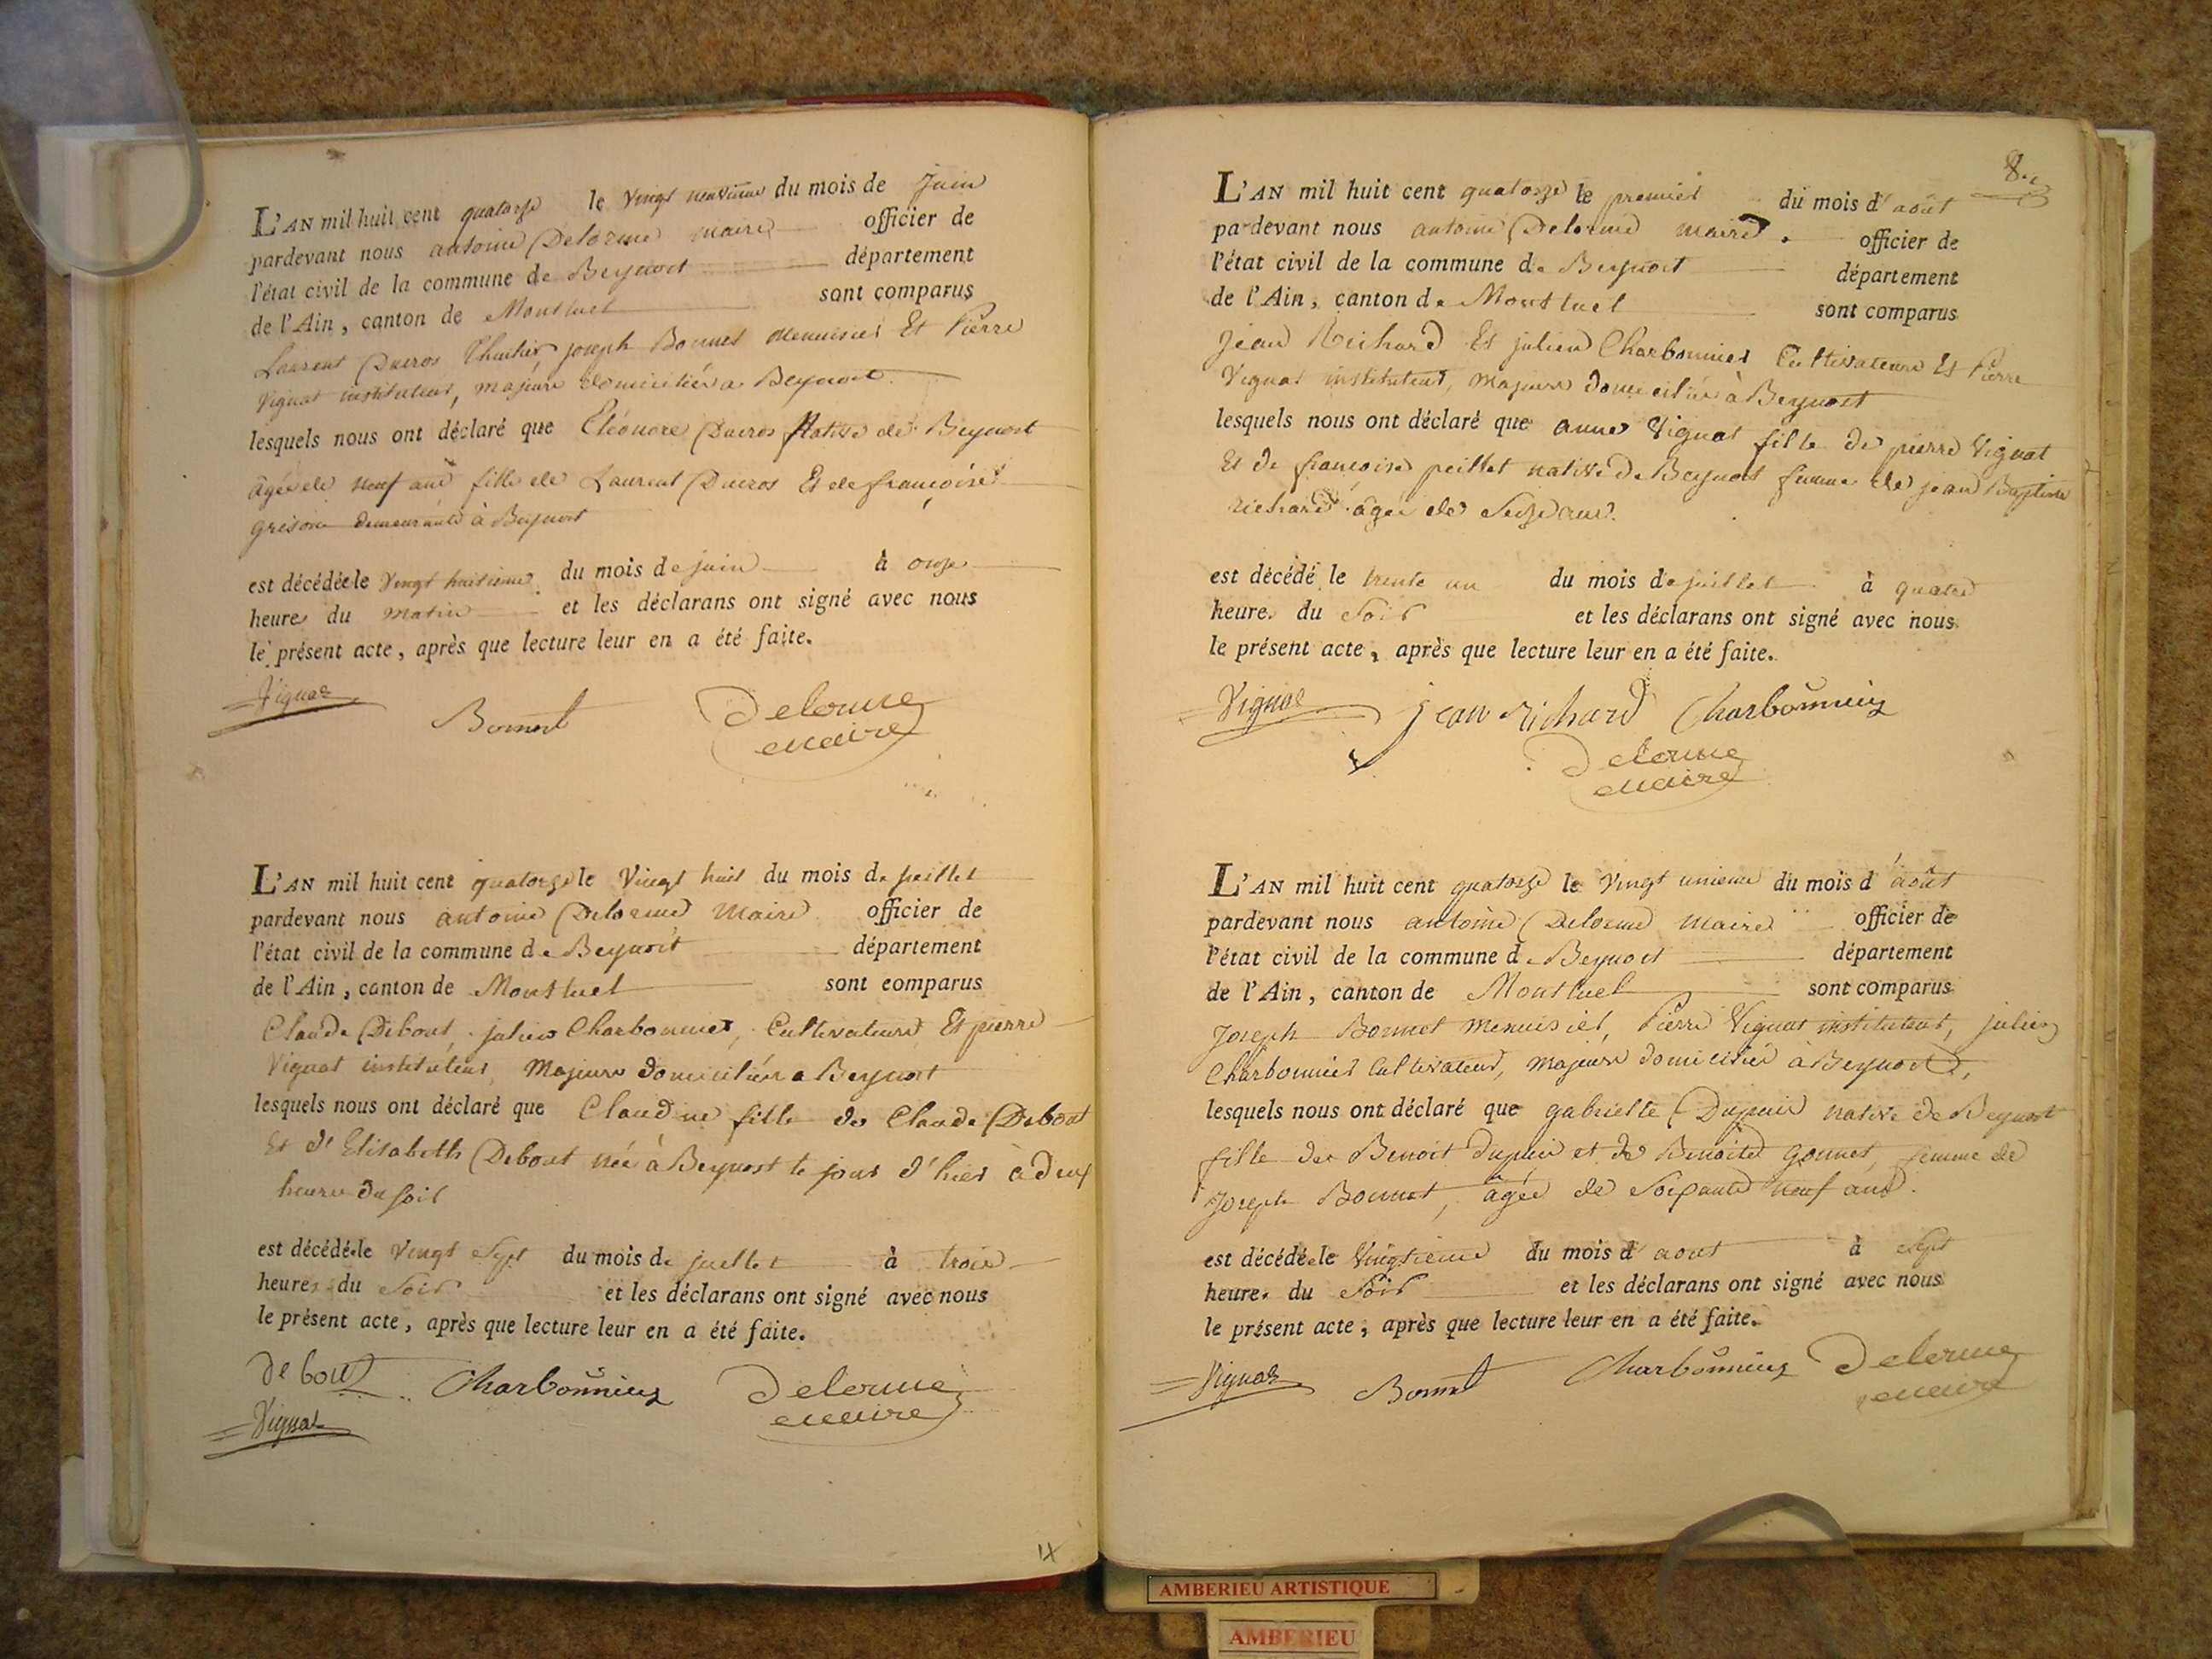 L'AN mil huit cent quatorze le vingt neuvieme du mois de Juin
pardevant nous antoine Delorme maire officier de
l'état civil de la commune de Beynost département
de l'Ain, canton de Montluel sont comparus
Laurent Ducros joseph Bonnet menuisier Et Pierre
Vignat instituteur, majeurs domiciliés a Beynost
lesquels nous ont déclaré que Eléonore Ducros Native de Beynost
agée de neuf ans fille de Laurent Ducros Et de françoise
grison demeurante à Beynost
est décédée le vingt huitieme du mois de juin à onze
heures du matin et les déclarans ont signé avec nous
le présent acte, après que lecture leur en a été faite.
Vignat Bonnet Delorme
maire
L'AN mil huit cent quatorze le vingt huit du mois de juillet
pardevant nous antoine Delorme maire officier de
l'état civil de la commune de Beynost département
de l'Ain, canton de Montluel sont comparus
Claude Debout, julien Charbonnier, Cultivateurs Et pierre
Vignat instituteur, Majeurs domiciliés a Beynost
lesquels nous ont déclaré que Claudine fille de Claude Debout
Et d'Elisabeth Debout née à Beynost le jour d'hier à deux
heures du soir
est décédée le vingt sept du mois de juillet à trois
heures du soir et les déclarans ont signé avec nous
le présent acte, après que lecture leur en a été faite.
debout Charbonnier Delorme
Vignat maire
14
8.
L'AN mil huit cent quatorze le premier du mois d'août
pardevant nous antoine Delorme maire officier de
l'état civil de la commune de Beynost département
de l'Ain, canton de Montluel sont comparus
Jean Richard Et julien Charbonnier Cultivateurs Et Pierre
Vignat instituteur, majeurs domiciliés à Beynost
lesquels nous ont déclaré que anne Vignat fille de pierre Vignat
Et de françoise peillet native de Beynost femme de jean Baptiste
richard agée de seize ans.
est décédé le trente un du mois de juillet à quatre
heure. du soir et les déclarans ont signé avec nous
le présent acte, après que lecture leur en a été faite.
Vignat jean Richard Charbonnier
Delorme
maire
L'AN mil huit cent quatorze le vingt unieme du mois d'août
pardevant nous antoine Delorme maire officier de
l'état civil de la commune de Beynost département
de l'Ain, canton de Montluel sont comparus
Joseph Bonnet menuisier, Pierre Vignat instituteur, julien
Charbonnier Cultivateur, majeurs domiciliés à Beynost,
lesquels nous ont déclaré que gabrielle Dupuis native de Beynost
fille de Benoit dupuis et de Benoite gonnet, femme de
Joseph Bonnet, agée de soixante neuf ans.
est décédée le vingtieme du mois d'aout à sept
heure. du soir et les déclarans ont signé avec nous
le présent acte, après que lecture leur en a été faite.
Vignat Bonnet Charbonnier Delorme
maire
AMBERIEU ARTISTIQUE
AMBERIEU